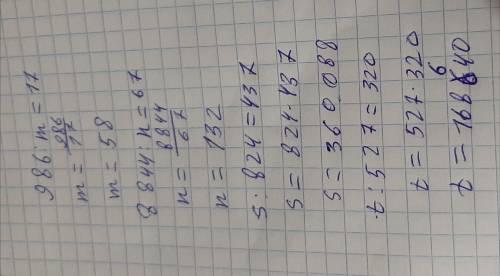 986:m=17
m=986/17
m=58
8 844:n=67
n=8844/67
n=132
s:824=437
s=824·437
s=360.088
t:527=320
t=527·320
t=168640